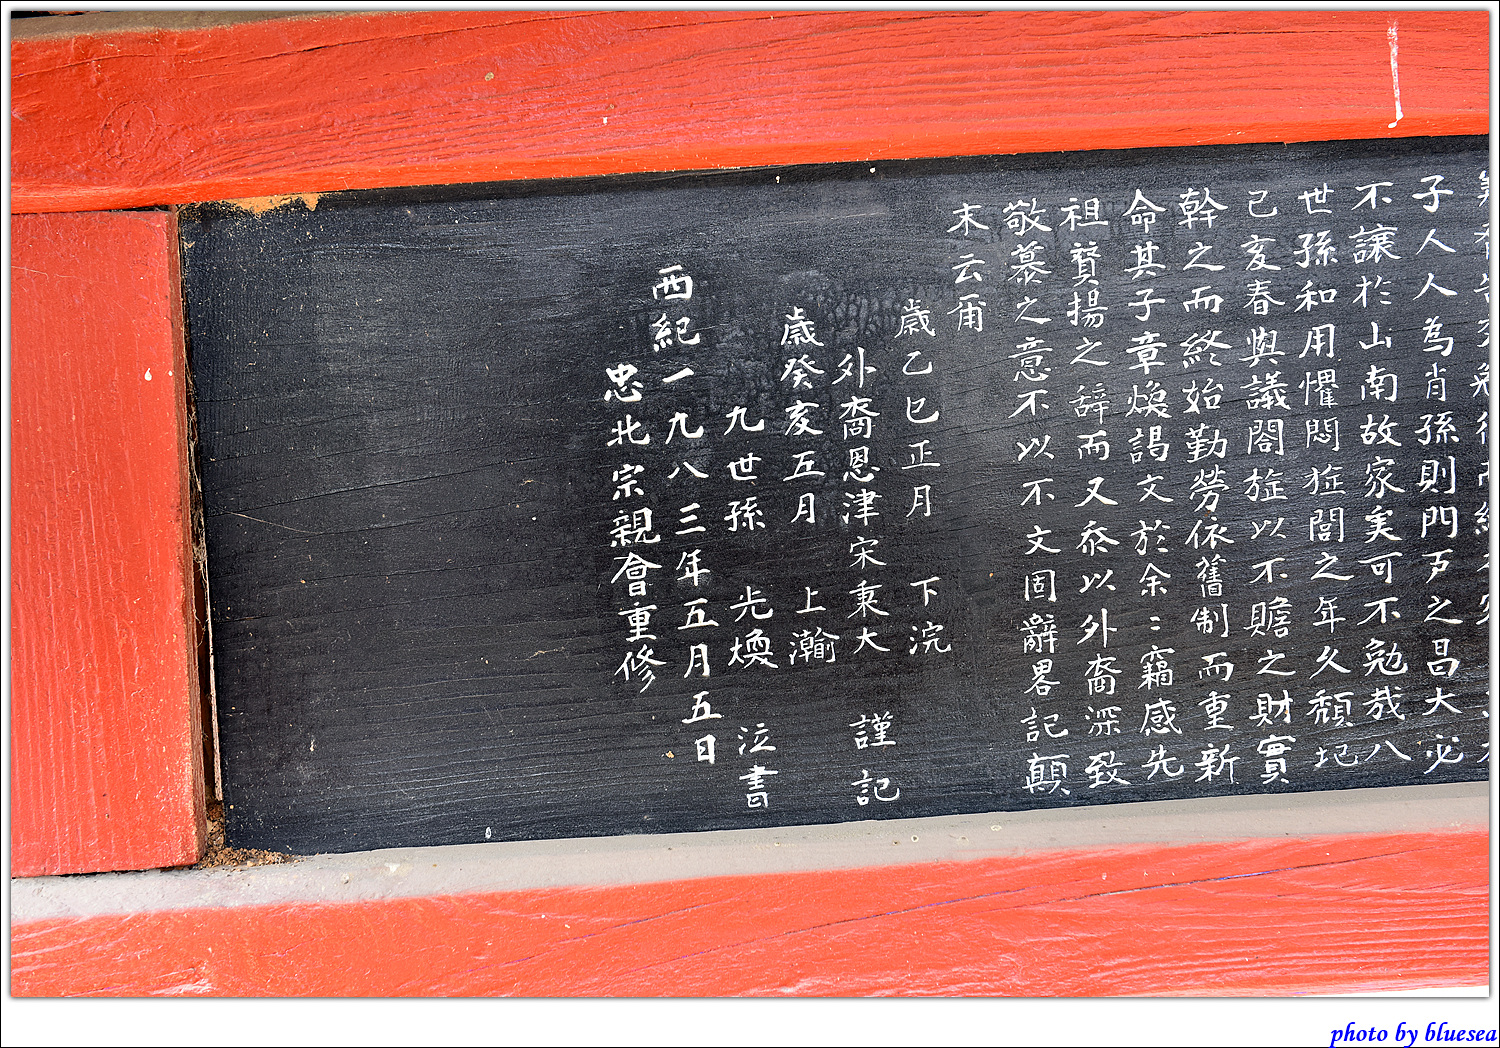 子人人為肖孫則門戶之昌大必
不讓於山南故家矣可不勉哉八
世孫和用懼悶旌閭之年久頹圮
己亥春與議閤旌以不贍之財實
幹之而終始勤勞依舊制而重新
命其子章煥謁文於余〻竊感先
祖贊揚之辞而又忝以外裔深致
敬慕之意不以不文固辭畧記顛
末云爾
歲乙巳正月 下浣
外裔恩津宋秉大 謹記
歲癸亥五月 上瀚
九世孫 光煥 泣書
西紀一九八三年五月五日
忠北宗親會重修
photo by bluesea